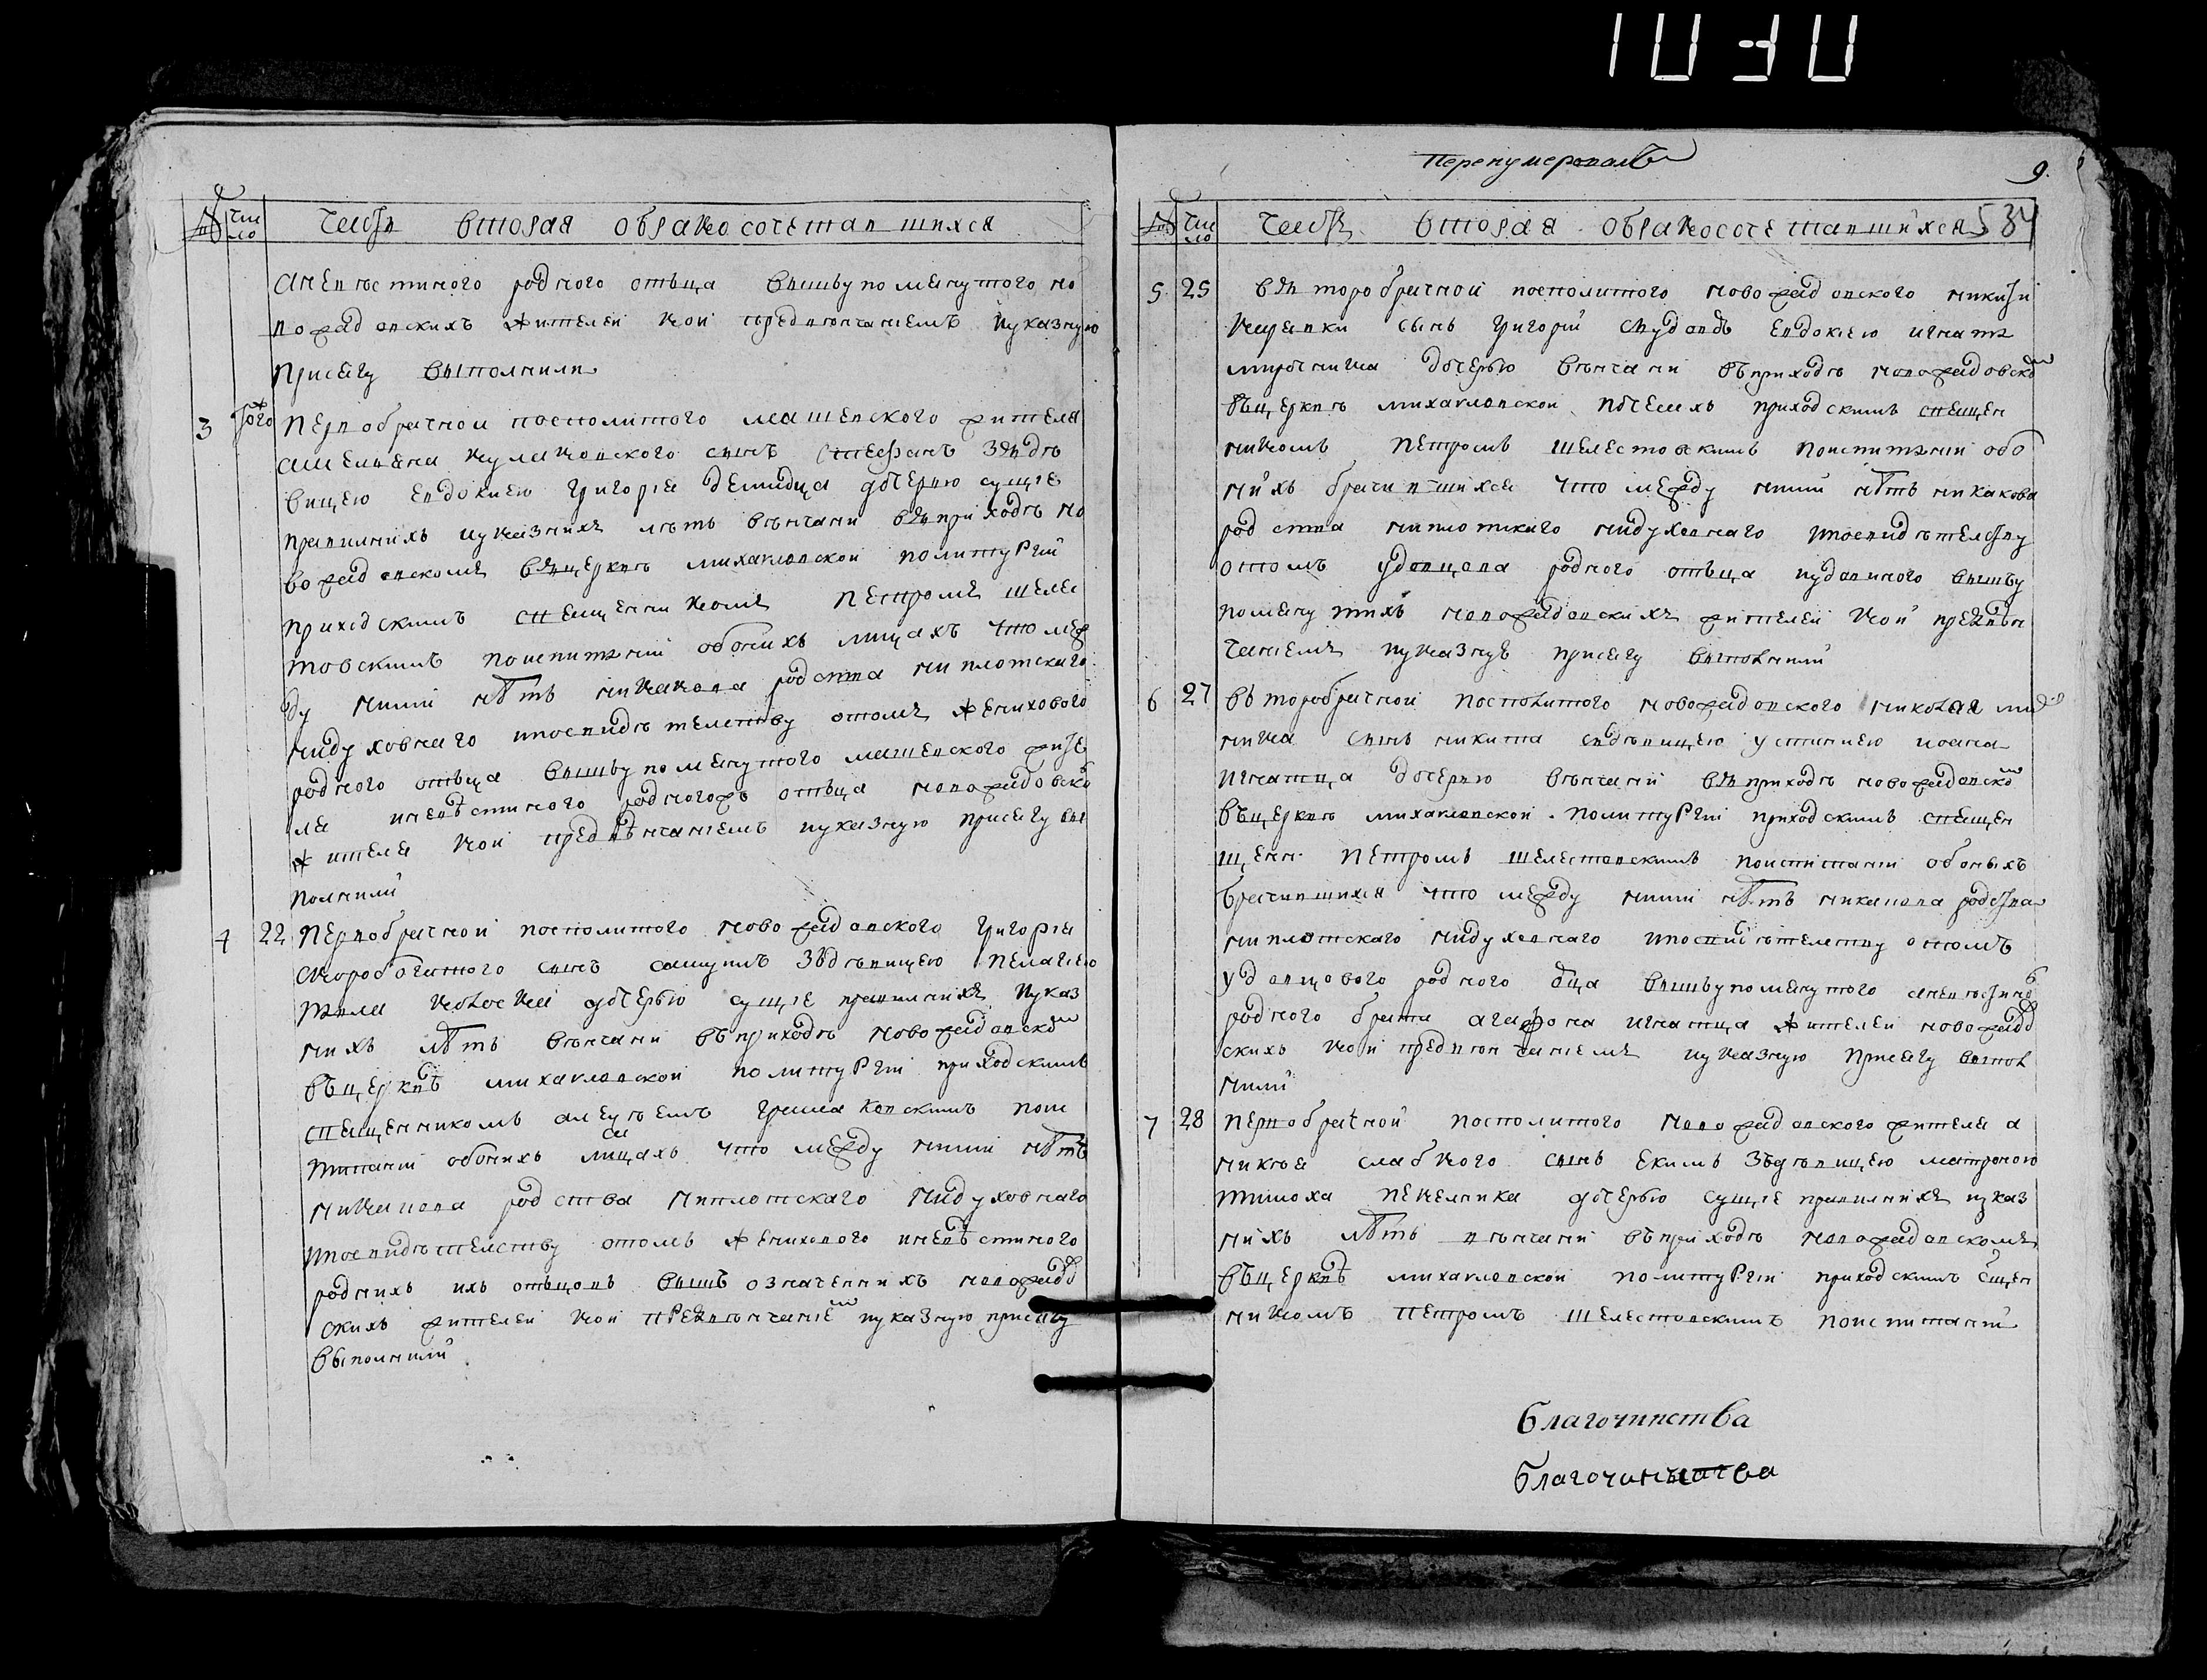 1030
№ число Часть вторая о бракосочетавшихся
а невѣстиного родного отъца вишъупомянутого но
вожадовскихъ жителей кои предвѣнчаніемъ и указную
присягу выполнили
3 того ж Первобрачной посполитого машевского жителя
сынъ Стефанъ з дѣ
вицею Евдокиею Григорія Демидца дочерью сущіе
правилнихъ и указнихъ лѣтъ вѣнчани въ приходѣ но
вожадовскомъ въ церквѣ михайловской по литургіи
приходскимъ священникомъ Петромъ Шелес
товскимъ по испитаніи обоихъ лицахъ что меж
ду ними нѣтъ никакова родства ни плотскаго
ни духовнаго и по свидѣтелству о томъ женихового
родного отъца вишъупомянутого машевского жите
ля и невѣстиного родного жъ отъца новожадовско
жителя кои предвѣнчаніемъ и указную присягу вы
полнили
4 22 Первобрачной посполитого новожадовского Григорія
Скоробогатого сынъ з дѣвицею Пелагіею
дочерью сущіе правилнихъ и указ
нихъ лѣтъ вѣнчани въ приходѣ новожадовском
въ церквѣ михайловской по литургіи приходскимъ
священникомъ Алексѣемъ по ис
питаніи обоихъ лицахъ что между ними нѣтъ
никакова родства ни плотскаго ни духовнаго
и по свидѣтелству о томъ женихового и невѣстиного
роднихъ ихъ отъцовъ вишъ означеннихъ новожадов
скихъ жителей кои предвѣнчаніем и указную присягу
выполнили
Перенумеровалъ
9.
534
№ число Часть вторая о бракосочетавшихся
5 25 Въторобрачной посполитого новожадовского Никити
сынъ Григорій с вдовою Евдокіею Игната
дочерью вѣнчани въ приходѣ новожадовском
въ церквѣ михайловской приходскимъ священ
никомъ Петромъ Шелестовскимъ по испитаніи обо
ихъ брачившихся что между ними нѣтъ никакова
родства ни плотскаго ни духовнаго и по свидѣтелству
о томъ удовцова родного отъца и удовиного вишъу
помянутихъ новожадовскихъ жителей кои предвѣн
чаніемъ и указную присягу выполнили
6 27 Въторобрачной посполитого новожадовского Николая
сынъ Никита с дѣвицею Устиніею Иоана
Игнатца дочерью вѣнчани въ приходѣ новожадовском
въ церквѣ михайловской по литургіи приходскимъ священ
щенн Петромъ Шелестовскимъ по испитаніи обоихъ
брачившихся что между ними нѣтъ никакова родства
ни плотскаго ни духовнаго и по свидѣтелству о томъ
удовцового родного отца вишъупомянутого а невѣстиного
родного брата Агафона Игнатца жителей новожадов
скихъ кои предвѣнчаніемъ и указную присягу выпол
нили
7 28 Первобрачной посполитого новожадовского жителя а
сынъ Екимъ з дѣвицею Матроною
Тимоха дочерью сущіе правилнихъ и указ
нихъ лѣтъ вѣнчани въ приходѣ новожадовскомъ
въ церквѣ михайловской по литургіи приходскимъ сщен
никомъ Петромъ Шелестовскимъ по испитаніи
Благочинства
Благочинства